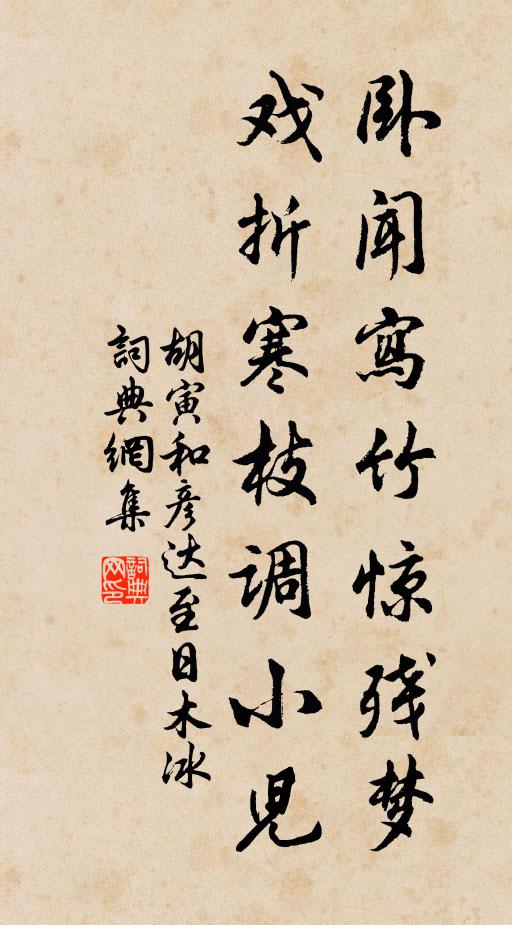 卧闻寫竹惊残梦
戏折寒枝调小児
胡寅和彦达至日木冰
詞典網集
詞典网印